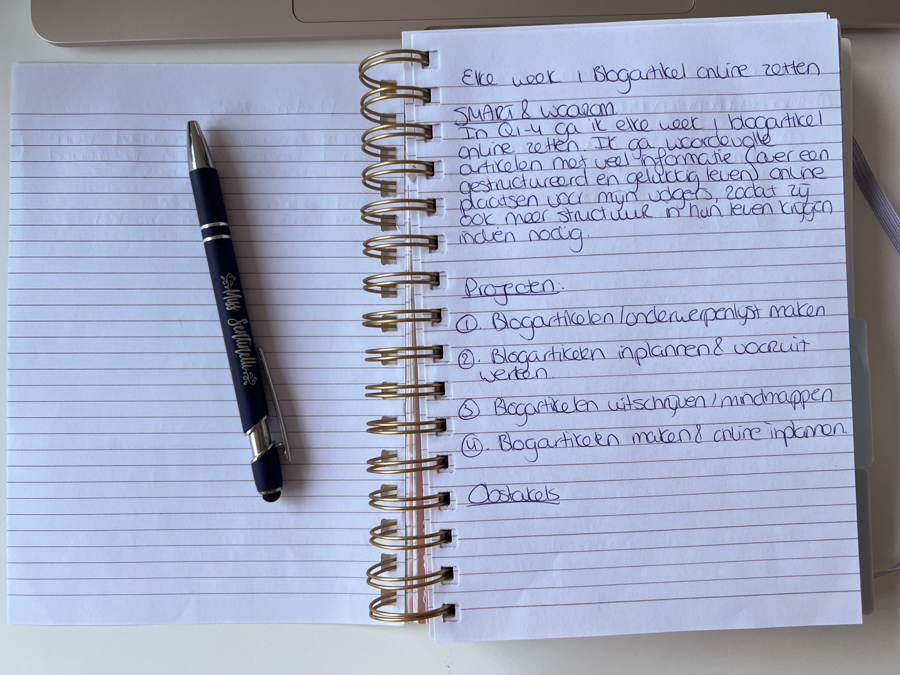 Elke week 1 Blogartikel online zetten
SMART & waarom
In Q1-4 ga ik elke week 1 blogartikel
online zetten. Ik ga waardevolle
artikelen met veel informatie (over een
gestructureerd en gelukkig leven) online
plaatsen voor mijn volgers, zodat zij
ook meer structuur in hun leven krijgen
indien nodig.
Projecten:
①. Blogartikelen/onderwerpenlijst maken
②. Blogartikelen inplannen & vooruit
werken
③ Blogartikelen uitschrijven/mindmappen
④. Blogartikelen maken & online inplannen
Obstakels
Miss